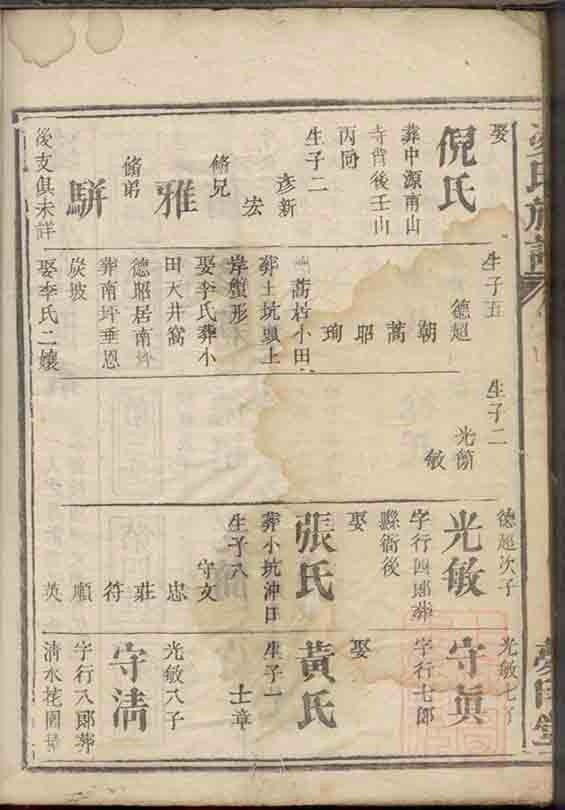 娶
倪氏
葬中源南山
寺背後壬山
丙向
生子二
彥新
宏
脩兄
雅
脩弟
駢
後支俱未詳
生子五
德超
朝
蒿
昭
珣
蒿居小田
葬土坑頭上
岸蟹形
娶李氏葬小
田天井窩
德昭居南坪
葬南坪垂恩
炭坡
娶李氏二孃
生子二
光飭
敏
德超次子
光敏
字行四郎葬
縣衙後
娶
張氏
葬小坑沖口
生子八
守文
忠
莊
符
順
英
光敏七子
守眞
字行七郎
娶
黃氏
生子一
士章
光敏八子
守淸
字行八郎葬
清水花園
氏族譜